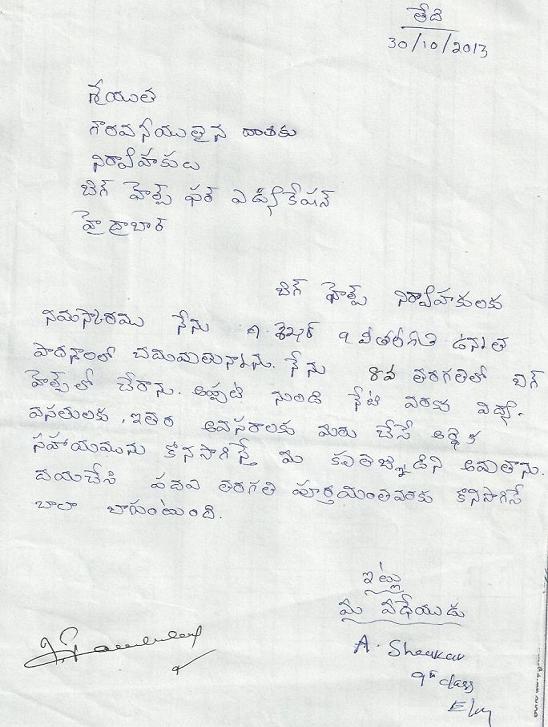 తేది
30/10/2013
శ్రీయుత
గౌరవనీయులైన దాతకు
నిర్వాహకులు
బిగ్ హెల్ప్ ఫర్ ఎడ్యుకేషన్
హైద్రాబాద్
బిగ్ హెల్ప్ నిర్వాహకులకు
నమస్కారము నేను ఎ. శేఖర్ 9 వ తరగతి ఉన్నత
పాఠశాలలో చదువుతున్నాను. నేను 8వ తరగతిలో బిగ్
హెల్ప్ లో చేరాను. అప్పటి నుండి నేటి వరకు విద్య,
వసతులకు, ఇతర అవసరాలకు మీరు చేసే ఆర్థిక
సహాయమును కొనసాగిస్తే మీ కృతజ్ఞుడిని అవుతాను.
దయచేసి పదవ తరగతి పూర్తయ్యేంతవరకు కొనసాగిస్తే
చాలా బాగుంటుంది.
ఇట్లు
మీ విధేయుడు
A. Sheakar
9th class